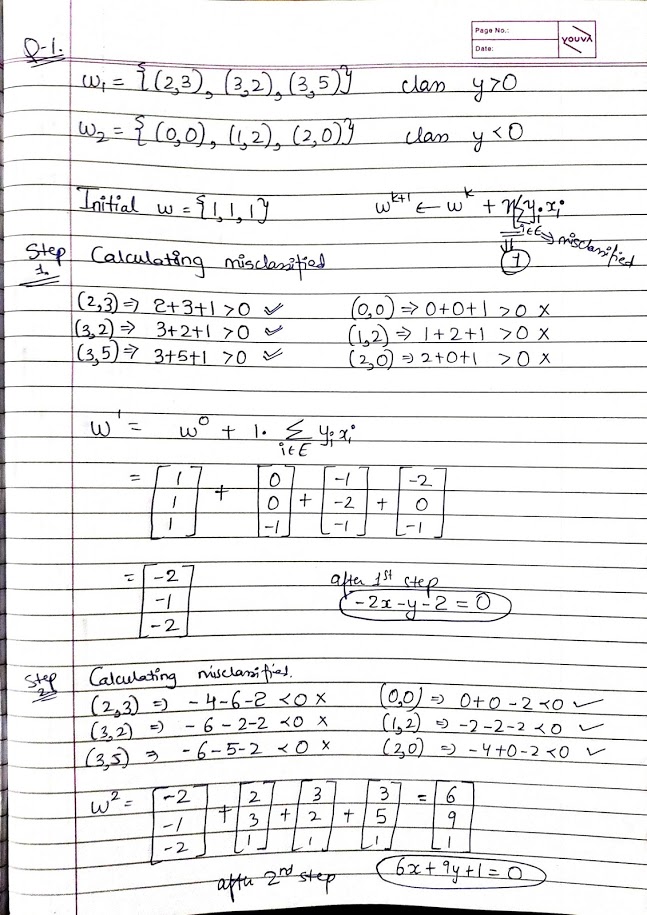 Page No.:
Date:
youvA
Q-1.
w₁ = {(2,3), (3,2), (3,5)} class y>0
w₂ = {(0,0), (1,2), (2,0)} class y<0
Initial w = {1,1,1} w^{k+1} ← w^k + η Σ_{i∈E} y_i x_i
i∈E ⇒ misclassified
1
Step 1. Calculating misclassified
(2,3) ⇒ 2+3+1 >0 ✓ (0,0) ⇒ 0+0+1 >0 ×
(3,2) ⇒ 3+2+1 >0 ✓ (1,2) ⇒ 1+2+1 >0 ×
(3,5) ⇒ 3+5+1 >0 ✓ (2,0) ⇒ 2+0+1 >0 ×
w' = w⁰ + 1. Σ_{i∈E} y_i x_i
= [1 1 1] + [0 0 -1] + [-1 -2 -1] + [-2 0 -1]
= [-2 -1 -2] after 1st step
-2x-y-2=0
Step 2 Calculating misclassified.
(2,3) ⇒ -4-6-2 <0 × (0,0) ⇒ 0+0-2<0 ✓
(3,2) ⇒ -6-2-2 <0 × (1,2) ⇒ -2-2-2<0 ✓
(3,5) ⇒ -6-5-2 <0 × (2,0) ⇒ -4+0-2<0 ✓
w² = [-2 -1 -2] + [2 3 1] + [3 2 1] + [3 5 1] = [6 9 1]
after 2nd step 6x+9y+1=0